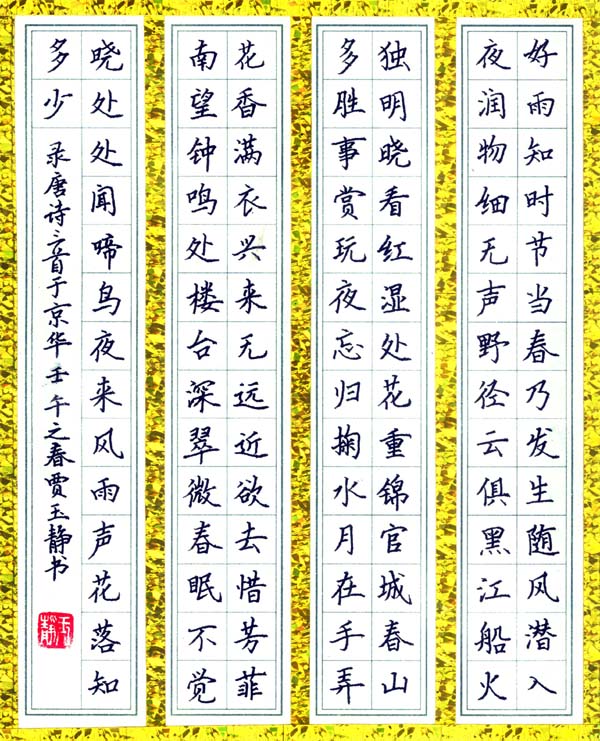 好雨知时节当春乃发生随风潜入
夜润物细无声野径云俱黑江船火
独明晓看红湿处花重锦官城春山
多胜事赏玩夜忘归掬水月在手弄
花香满衣兴来无远近欲去惜芳菲
南望钟鸣处楼台深翠微春眠不觉
晓处处闻啼鸟夜来风雨声花落知
多少
录唐诗三首于京华壬午之春贾玉静书
玉静